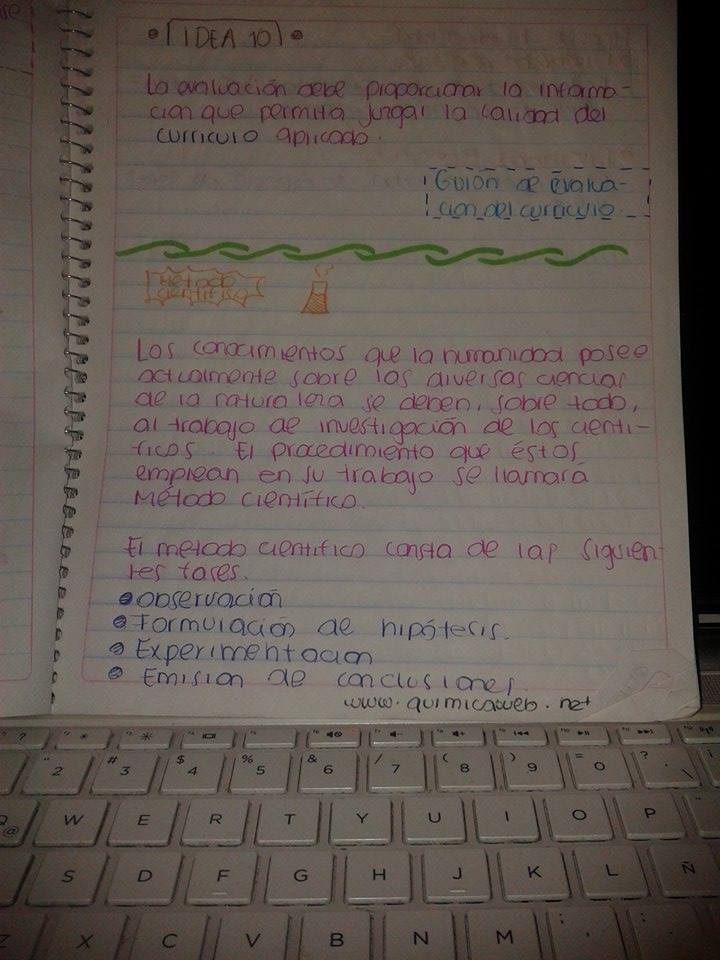 IDEA 10
La evaluación debe proporcionar la informa-
ción que permita juzgar la calidad del
curriculo aplicado.
Guión de evalua-
cion del curriculo.
Método
científico
Los conocimientos que la humanidad posee
actualmente sobre las diversas ciencias
de la naturaleza se deben, sobre todo,
al trabajo de investigación de los cientí-
ficos. El procedimiento que éstos
emplean en su trabajo se llamará
Método científico.
El método científico consta de las siguien-
tes fases.
Observación
Formulación de hipótesis.
Experimentación
Emisión de conclusiones
www.quimicaweb.net
" 2 # 3 $ 4 % 5 & 6 / 7 ( 8 ) 9 = 0 ? ' \
@ W E R T Y U I O P
S D F G H J K L Ñ
Z X C V B N M ; , : .